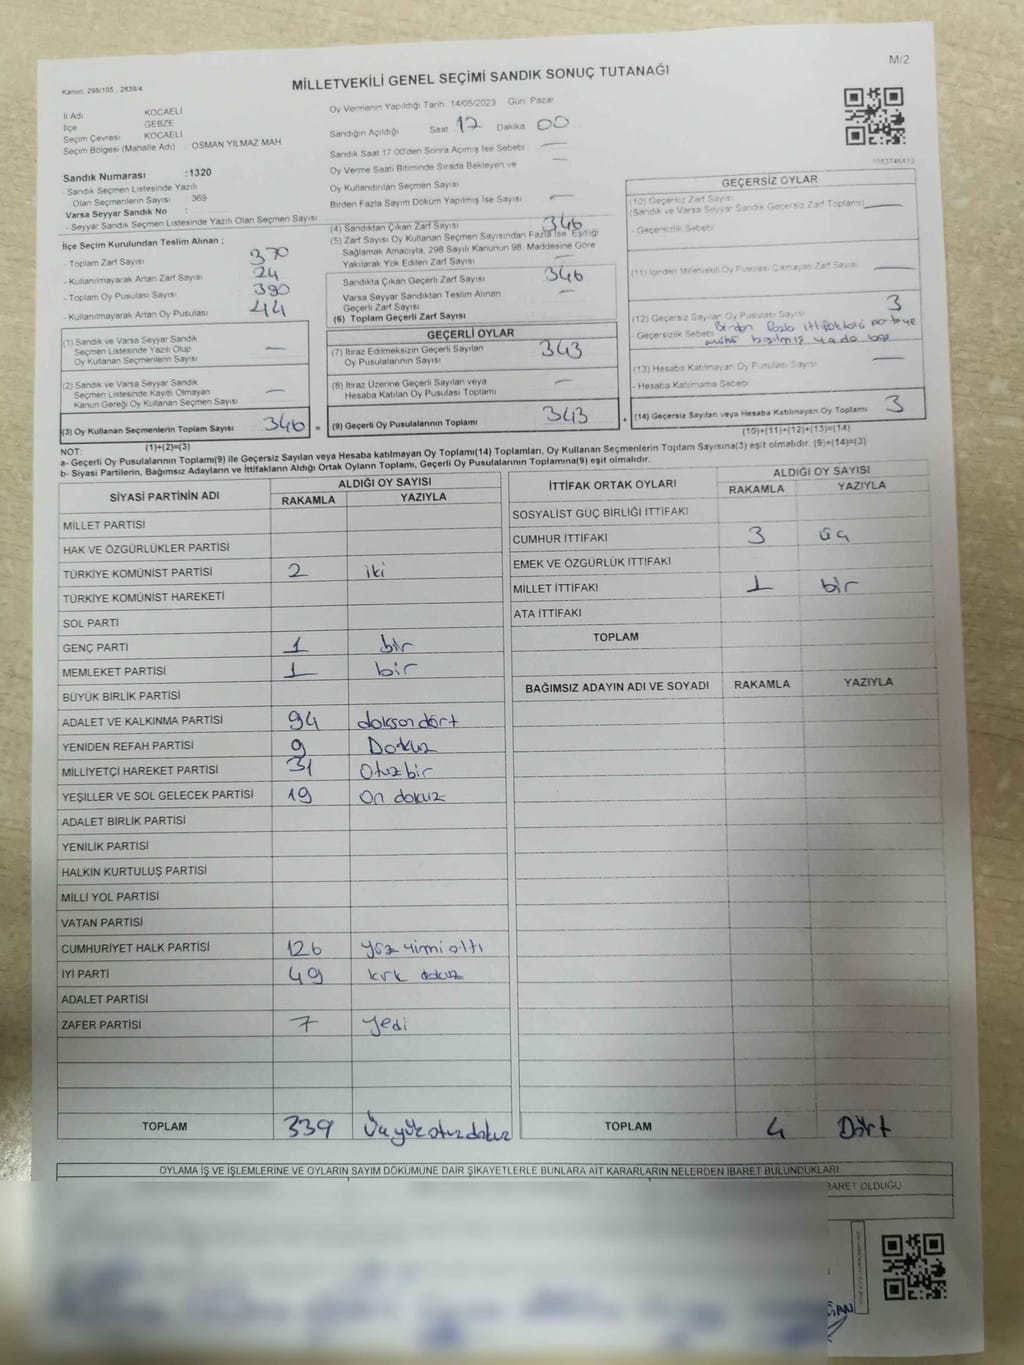 M/2
Kanun: 298/105 , 2839/4
MİLLETVEKİLİ GENEL SEÇİMİ SANDIK SONUÇ TUTANAĞI
İl Adı KOCAELİ
İlçe GEBZE
Seçim Çevresi KOCAELİ
Seçim Bölgesi (Mahalle Adı) OSMAN YILMAZ MAH.
Sandık Numarası :1320
- Sandık Seçmen Listesinde Yazılı
Olan Seçmenlerin Sayısı 369
Varsa Seyyar Sandık No :
- Seyyar Sandık Seçmen Listesinde Yazılı Olan Seçmen Sayısı
İlçe Seçim Kurulundan Teslim Alınan ;
- Toplam Zarf Sayısı 370
- Kullanılmayarak Artan Zarf Sayısı 24
- Toplam Oy Pusulası Sayısı 390
- Kullanılmayarak Artan Oy Pusulası 44
(1) Sandık ve Varsa Seyyar Sandık
Seçmen Listesinde Yazılı Olup
Oy Kullanan Seçmen Sayısı —
(2) Sandık ve Varsa Seyyar Sandık
Seçmen Listesinde Kayıtlı Olmayan
Kanun Gereği Oy Kullanan Seçmen Sayısı —
(3) Oy Kullanan Seçmenlerin Toplam Sayısı 346 =
(1)+(2)=(3)
Oy Vermenin Yapıldığı Tarih: 14/05/2023 Gün: Pazar
Sandığın Açıldığı Saat 17 Dakika 00
Sandık Saat 17:00'den Sonra Açılmış İse Sebebi —
Oy Verme Saati Bitiminde Sırada Bekleyen ve —
Oy Kullandırılan Seçmen Sayısı
Birden Fazla Sayım Döküm Yapılmış İse Sayısı —
(4) Sandıktan Çıkan Zarf Sayısı 346
(5) Zarf Sayısı Oy Kullanan Seçmen Sayısından Fazla İse, Eşitliği
Sağlamak Amacıyla, 298 Sayılı Kanunun 98. Maddesine Göre
Yakılarak Yok Edilen Zarf Sayısı —
Sandıkta Çıkan Geçerli Zarf Sayısı 346
Varsa Seyyar Sandıktan Teslim Alınan
Geçerli Zarf Sayısı —
(6) Toplam Geçerli Zarf Sayısı
GEÇERLİ OYLAR
(7) İtiraz Edilmeksizin Geçerli Sayılan
Oy Pusulalarının Sayısı 343
(8) İtiraz Üzerine Geçerli Sayılan veya
Hesaba Katılan Oy Pusulası Toplamı —
(9) Geçerli Oy Pusulalarının Toplamı 343 +
1083746413
GEÇERSİZ OYLAR
(10) Geçersiz Zarf Sayısı
(Sandık ve Varsa Seyyar Sandık Geçersiz Zarf Toplamı) —
- Geçersizlik Sebebi
(11) İçinden Milletvekili Oy Pusulası Çıkmayan Zarf Sayısı —
(12) Geçersiz Sayılan Oy Pusulası Sayısı 3
- Geçersizlik Sebebi Birden fazla ittifaktaki partiye
mühür basılmış yada boş
(13) Hesaba Katılmayan Oy Pusulası Sayısı —
- Hesaba Katılmama Sebebi
(14) Geçersiz Sayılan veya Hesaba Katılmayan Oy Toplamı 3
(10)+(11)+(12)+(13)=(14)
NOT:
a- Geçerli Oy Pusulalarının Toplamı(9) ile Geçersiz Sayılan veya Hesaba katılmayan Oy Toplamı(14) Toplamları, Oy Kullanan Seçmenlerin Toplam Sayısına(3) eşit olmalıdır. (9)+(14)=(3)
b- Siyasi Partilerin, Bağımsız Adayların ve İttifakların Aldığı Ortak Oyların Toplamı, Geçerli Oy Pusulalarının Toplamına(9) eşit olmalıdır.
SİYASİ PARTİNİN ADI ALDIĞI OY SAYISI
RAKAMLA YAZIYLA
MİLLET PARTİSİ
HAK VE ÖZGÜRLÜKLER PARTİSİ
TÜRKİYE KOMÜNİST PARTİSİ 2 iki
TÜRKİYE KOMÜNİST HAREKETİ
SOL PARTİ
GENÇ PARTİ 1 bir
MEMLEKET PARTİSİ 1 bir
BÜYÜK BİRLİK PARTİSİ
ADALET VE KALKINMA PARTİSİ 94 doksan dört
YENİDEN REFAH PARTİSİ 9 Dokuz
MİLLİYETÇİ HAREKET PARTİSİ 31 Otuz bir
YEŞİLLER VE SOL GELECEK PARTİSİ 19 On dokuz
ADALET BİRLİK PARTİSİ
YENİLİK PARTİSİ
HALKIN KURTULUŞ PARTİSİ
MİLLİ YOL PARTİSİ
VATAN PARTİSİ
CUMHURİYET HALK PARTİSİ 126 yüz yirmi altı
İYİ PARTİ 49 kırk dokuz
ADALET PARTİSİ
ZAFER PARTİSİ 7 yedi
TOPLAM 339 Üçyüzotuzdokuz
İTTİFAK ORTAK OYLARI ALDIĞI OY SAYISI
RAKAMLA YAZIYLA
SOSYALİST GÜÇ BİRLİĞİ İTTİFAKI
CUMHUR İTTİFAKI 3 üç
EMEK VE ÖZGÜRLÜK İTTİFAKI
MİLLET İTTİFAKI 1 bir
ATA İTTİFAKI
TOPLAM
BAĞIMSIZ ADAYIN ADI VE SOYADI RAKAMLA YAZIYLA
TOPLAM 4 Dört
OYLAMA İŞ VE İŞLEMLERİNE VE OYLARIN SAYIM DÖKÜMÜNE DAİR ŞİKAYETLERLE BUNLARA AİT KARARLARIN NELERDEN İBARET BULUNDUKLARI
BARET OLDUĞU